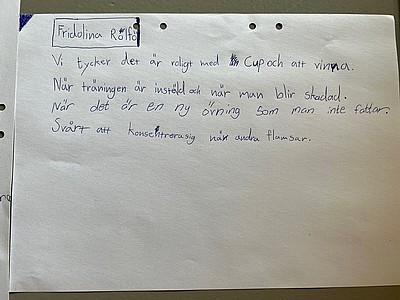 Fridolina Rölfö
Vi tycker det är roligt med Cup och att vinna.
När träningen är instäld och när man blir skadad.
När det är en ny övning som man inte fattar.
Svårt att konsentrerasig när andra flamsar.